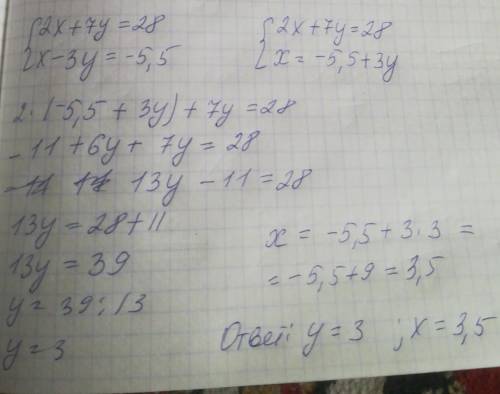 {2x+7y=28
{x-3y=-5,5
{2x+7y=28
{x=-5,5+3y
2·(-5,5+3y)+7y=28
-11+6y+7y=28
13y-11=28
13y=28+11
13y=39
y=39:13
y=3
x=-5,5+3·3=
=-5,5+9=3,5
Ответ: y=3 ; x=3,5